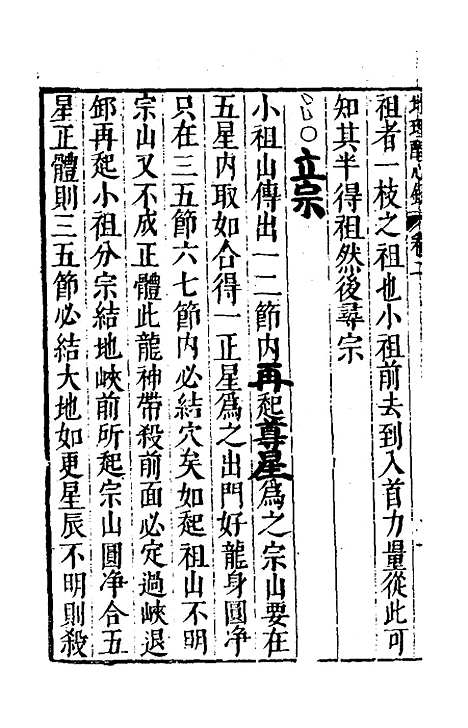 地理醒心錄 卷二
祖者一枝之祖也小祖前去到入首力量從此可
知其半得祖然後尋宗
○立宗
小祖山傳出一二節内再起尊星為之宗山要在
五星内取如合得一正星為之出門好龍身圓净
只在三五節六七節内必結穴矣如起祖山不明
宗山又不成正體此龍神帶殺前面必定過峽退
卸再起小祖分宗結地峽前所起宗山圓净合五
星正體則三五節必結大地如更星辰不明則殺